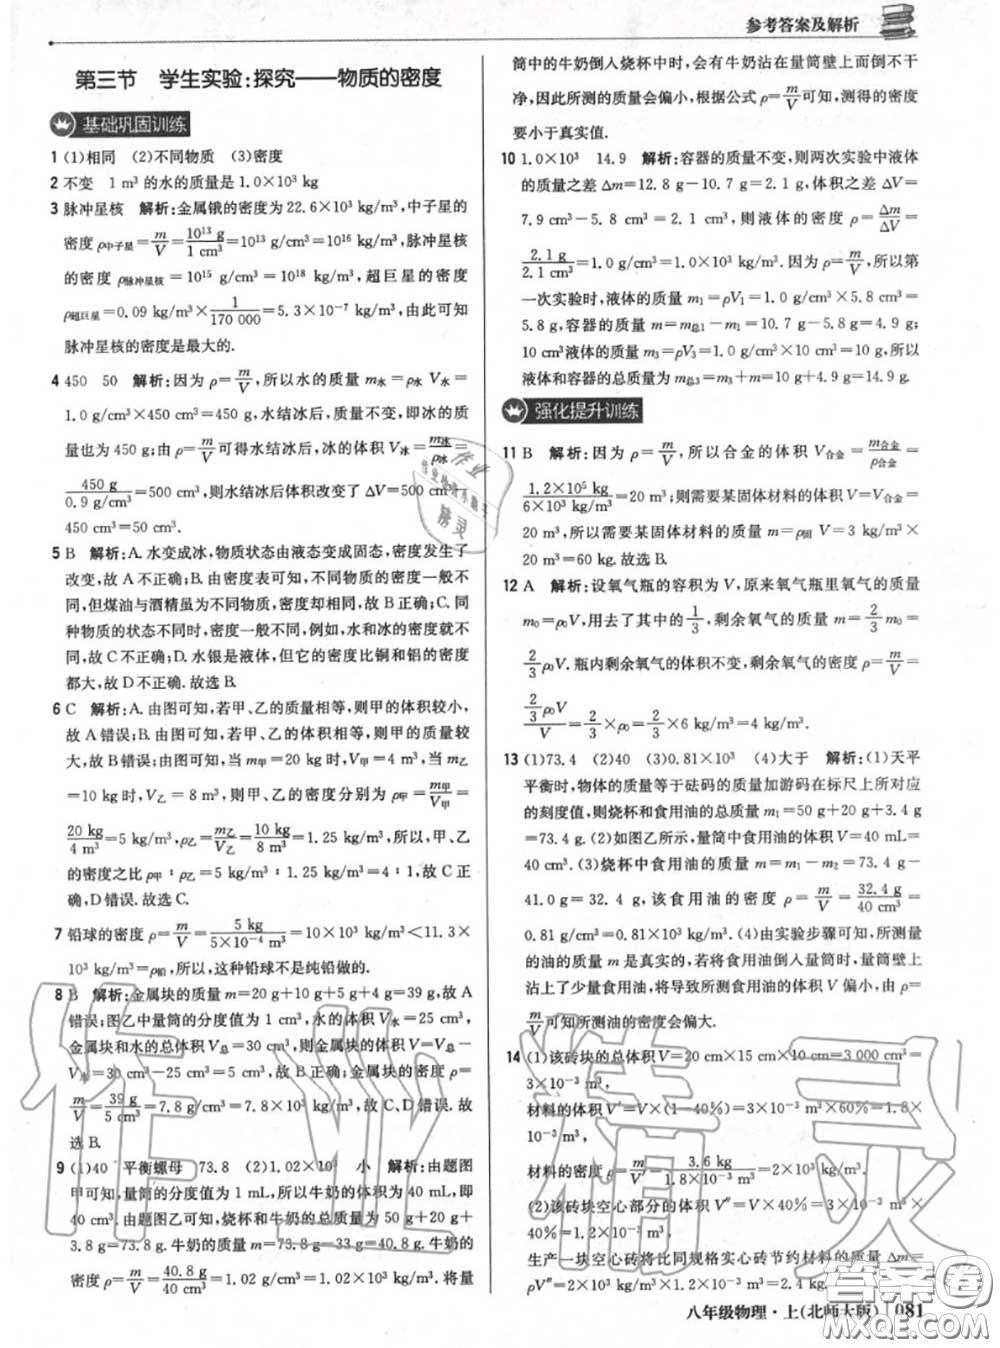 参考答案及解析
第三节 学生实验:探究——物质的密度
基础巩固训练
1 (1)相同 (2)不同物质 (3)密度
2 不变 1 m³的水的质量是1.0×10³ kg
3 脉冲星核 解析:金属锇的密度为22.6×10³ kg/m³,中子星的
密度ρ中子星=m/V=10¹³ g/1 cm³=10¹³ g/cm³=10¹⁶ kg/m³,脉冲星核
的密度 ρ脉冲星核=10¹⁵ g/cm³=10¹⁸ kg/m³,超巨星的密度
ρ超巨星=0.09 kg/m³×1/170 000=5.3×10⁻⁷ kg/m³,由此可知
脉冲星核的密度是最大的.
4 450 50 解析:因为ρ=m/V,所以水的质量m水=ρ水V水=
1.0 g/cm³×450 cm³=450 g,水结冰后,质量不变,即冰的质
量也为450 g,由ρ=m/V可得水结冰后,冰的体积V冰=m冰/ρ冰=
450 g/0.9 g/cm³=500 cm³,则水结冰后体积改变了ΔV=500 cm³-
450 cm³=50 cm³.
5 B 解析:A.水变成冰,物质状态由液态变成固态,密度发生了
改变,故A不正确;B.由密度表可知,物质的密度一般不同,
但煤油与酒精虽为不同物质,密度却相同,故B正确;C.同
种物质的状态不同时,密度一般不同,例如,水和冰的密度不
同,故C不正确;D.水银是液体,但它的密度比铜和铝的密度
都大,故D不正确.故选B.
6 C 解析:A.由图可知,若甲、乙的质量相等,则甲的体积较小,
故A错误;B.由图可知,若甲、乙的体积相等,则甲的质量较
大,故B错误;由图可知当m甲=20 kg时,V甲=4 m³;当m乙
=10 kg时,V乙=8 m³,则甲、乙的密度分别为ρ甲=m甲/V甲=
20 kg/4 m³=5 kg/m³,ρ乙=m乙/V乙=10 kg/8 m³=1.25 kg/m³,所以,甲、乙
的密度之比ρ甲∶ρ乙=5 kg/m³∶1.25 kg/m³=4∶1,故C正
确,D错误.故选C.
7 铅球的密度ρ=m/V=5 kg/5×10⁻⁴ m³=10×10³ kg/m³<11.3×
10³ kg/m³=ρ铅,所以,这种铅球不是纯铅做的.
8 B 解析:金属块的质量m=20 g+10 g+5 g+4 g=39 g,故A
错误;图乙中量筒的分度值为1 cm³,水的体积V水=25 cm³,
金属块和水的总体积V总=30 cm³,则金属块的体积V=V总-
V水=30 cm³-25 cm³=5 cm³,故B正确;金属块的密度ρ=
m/V=39 g/5 cm³=7.8 g/cm³=7.8×10³ kg/m³,故C、D错误.故
选B.
9 (1)40 平衡螺母 73.8 (2)1.02×10³ 小 解析:由题图
甲可知,量筒的分度值为1 mL,所以牛奶的体积为40 mL,即
40 cm³.由题图乙可知,烧杯和牛奶的总质量为50 g+20 g+
3.8 g=73.8 g.牛奶的质量为73.8 g-33 g=40.8 g.牛奶的
密度ρ=m/V=40.8 g/40 cm³=1.02 g/cm³=1.02×10³ kg/m³.将量
筒中的牛奶倒入烧杯中时,会有牛奶沾在量筒壁上而倒不干
净,因此所测的质量会偏小,根据公式ρ=m/V可知,测得的密度
要小于真实值.
10 1.0×10³ 14.9 解析:容器的质量不变,则两次实验中液体
的质量之差Δm=12.8 g-10.7 g=2.1 g,体积之差ΔV=
7.9 cm³-5.8 cm³=2.1 cm³,则液体的密度ρ=Δm/ΔV=
2.1 g/2.1 cm³=1.0 g/cm³=1.0×10³ kg/m³.因为ρ=m/V,所以第
一次实验时,液体的质量m₁=ρV₁=1.0 g/cm³×5.8 cm³=
5.8 g,容器的质量m=m总1-m₁=10.7 g-5.8 g=4.9 g;
10 cm³液体的质量m₃=ρV₃=1.0 g/cm³×10 cm³=10 g.所以
液体和容器的总质量为m总3=m₃+m=10 g+4.9 g=14.9 g.
强化提升训练
11 B 解析:因为ρ=m/V,所以合金的体积V合金=m合金/ρ合金=
1.2×10⁵ kg/6×10³ kg/m³=20 m³;则需要某固体材料的体积V=V合金=
20 m³,所以需要某固体材料的质量m=ρ固V=3 kg/m³×
20 m³=60 kg.故选B.
12 A 解析:设氧气瓶的容积为V,原来氧气瓶里氧气的质量
m₀=ρ₀V,用去了其中的1/3,剩余氧气的质量m=2/3m₀=
2/3ρ₀V.瓶内剩余氧气的体积不变,剩余氧气的密度ρ=m/V=
2/3ρ₀V/V=2/3×ρ₀=2/3×6 kg/m³=4 kg/m³.
13 (1)73.4 (2)40 (3)0.81×10³ (4)大于 解析:(1)天平
平衡时,物体的质量等于砝码的质量加游码在标尺上所对应
的刻度值,则烧杯和食用油的总质量m₁=50 g+20 g+3.4 g
=73.4 g.(2)如图乙所示,量筒中食用油的体积V=40 mL=
40 cm³.(3)烧杯中食用油的质量m=m₁-m₂=73.4 g-
41 g=32.4 g,该食用油的密度ρ=m/V=32.4 g/40 cm³=
0.81 g/cm³=0.81×10³ kg/m³.(4)由实验步骤可知,所测量
的油的质量m是真实的,将食用油倒入量筒时,量筒上
沾上了少量食用油,将导致所测体积V偏小,由ρ=
m/V可知所测油的密度会偏大.
14 (1)该砖块的总体积V=20 cm×15 cm×10 cm=3 000 cm³=
3×10⁻³ m³,
材料的体积V′=V×(1-40%)=3×10⁻³ m³×60%=1.8×
10⁻³ m³,
材料的密度ρ=m/V′=3.6 kg/1.8×10⁻³ m³=2×10³ kg/m³.
(2)该砖块空心部分的体积V″=V×40%=3×10⁻³ m³×
40%=1.2×10⁻³ m³,
生产一块空心砖将比同规格实心砖节约材料的质量Δm=
ρV″=2×10³ kg/m³×1.2×10⁻³ m³=2.4 kg.
八年级物理·上(北师大版) 081
作业精灵
答案圈